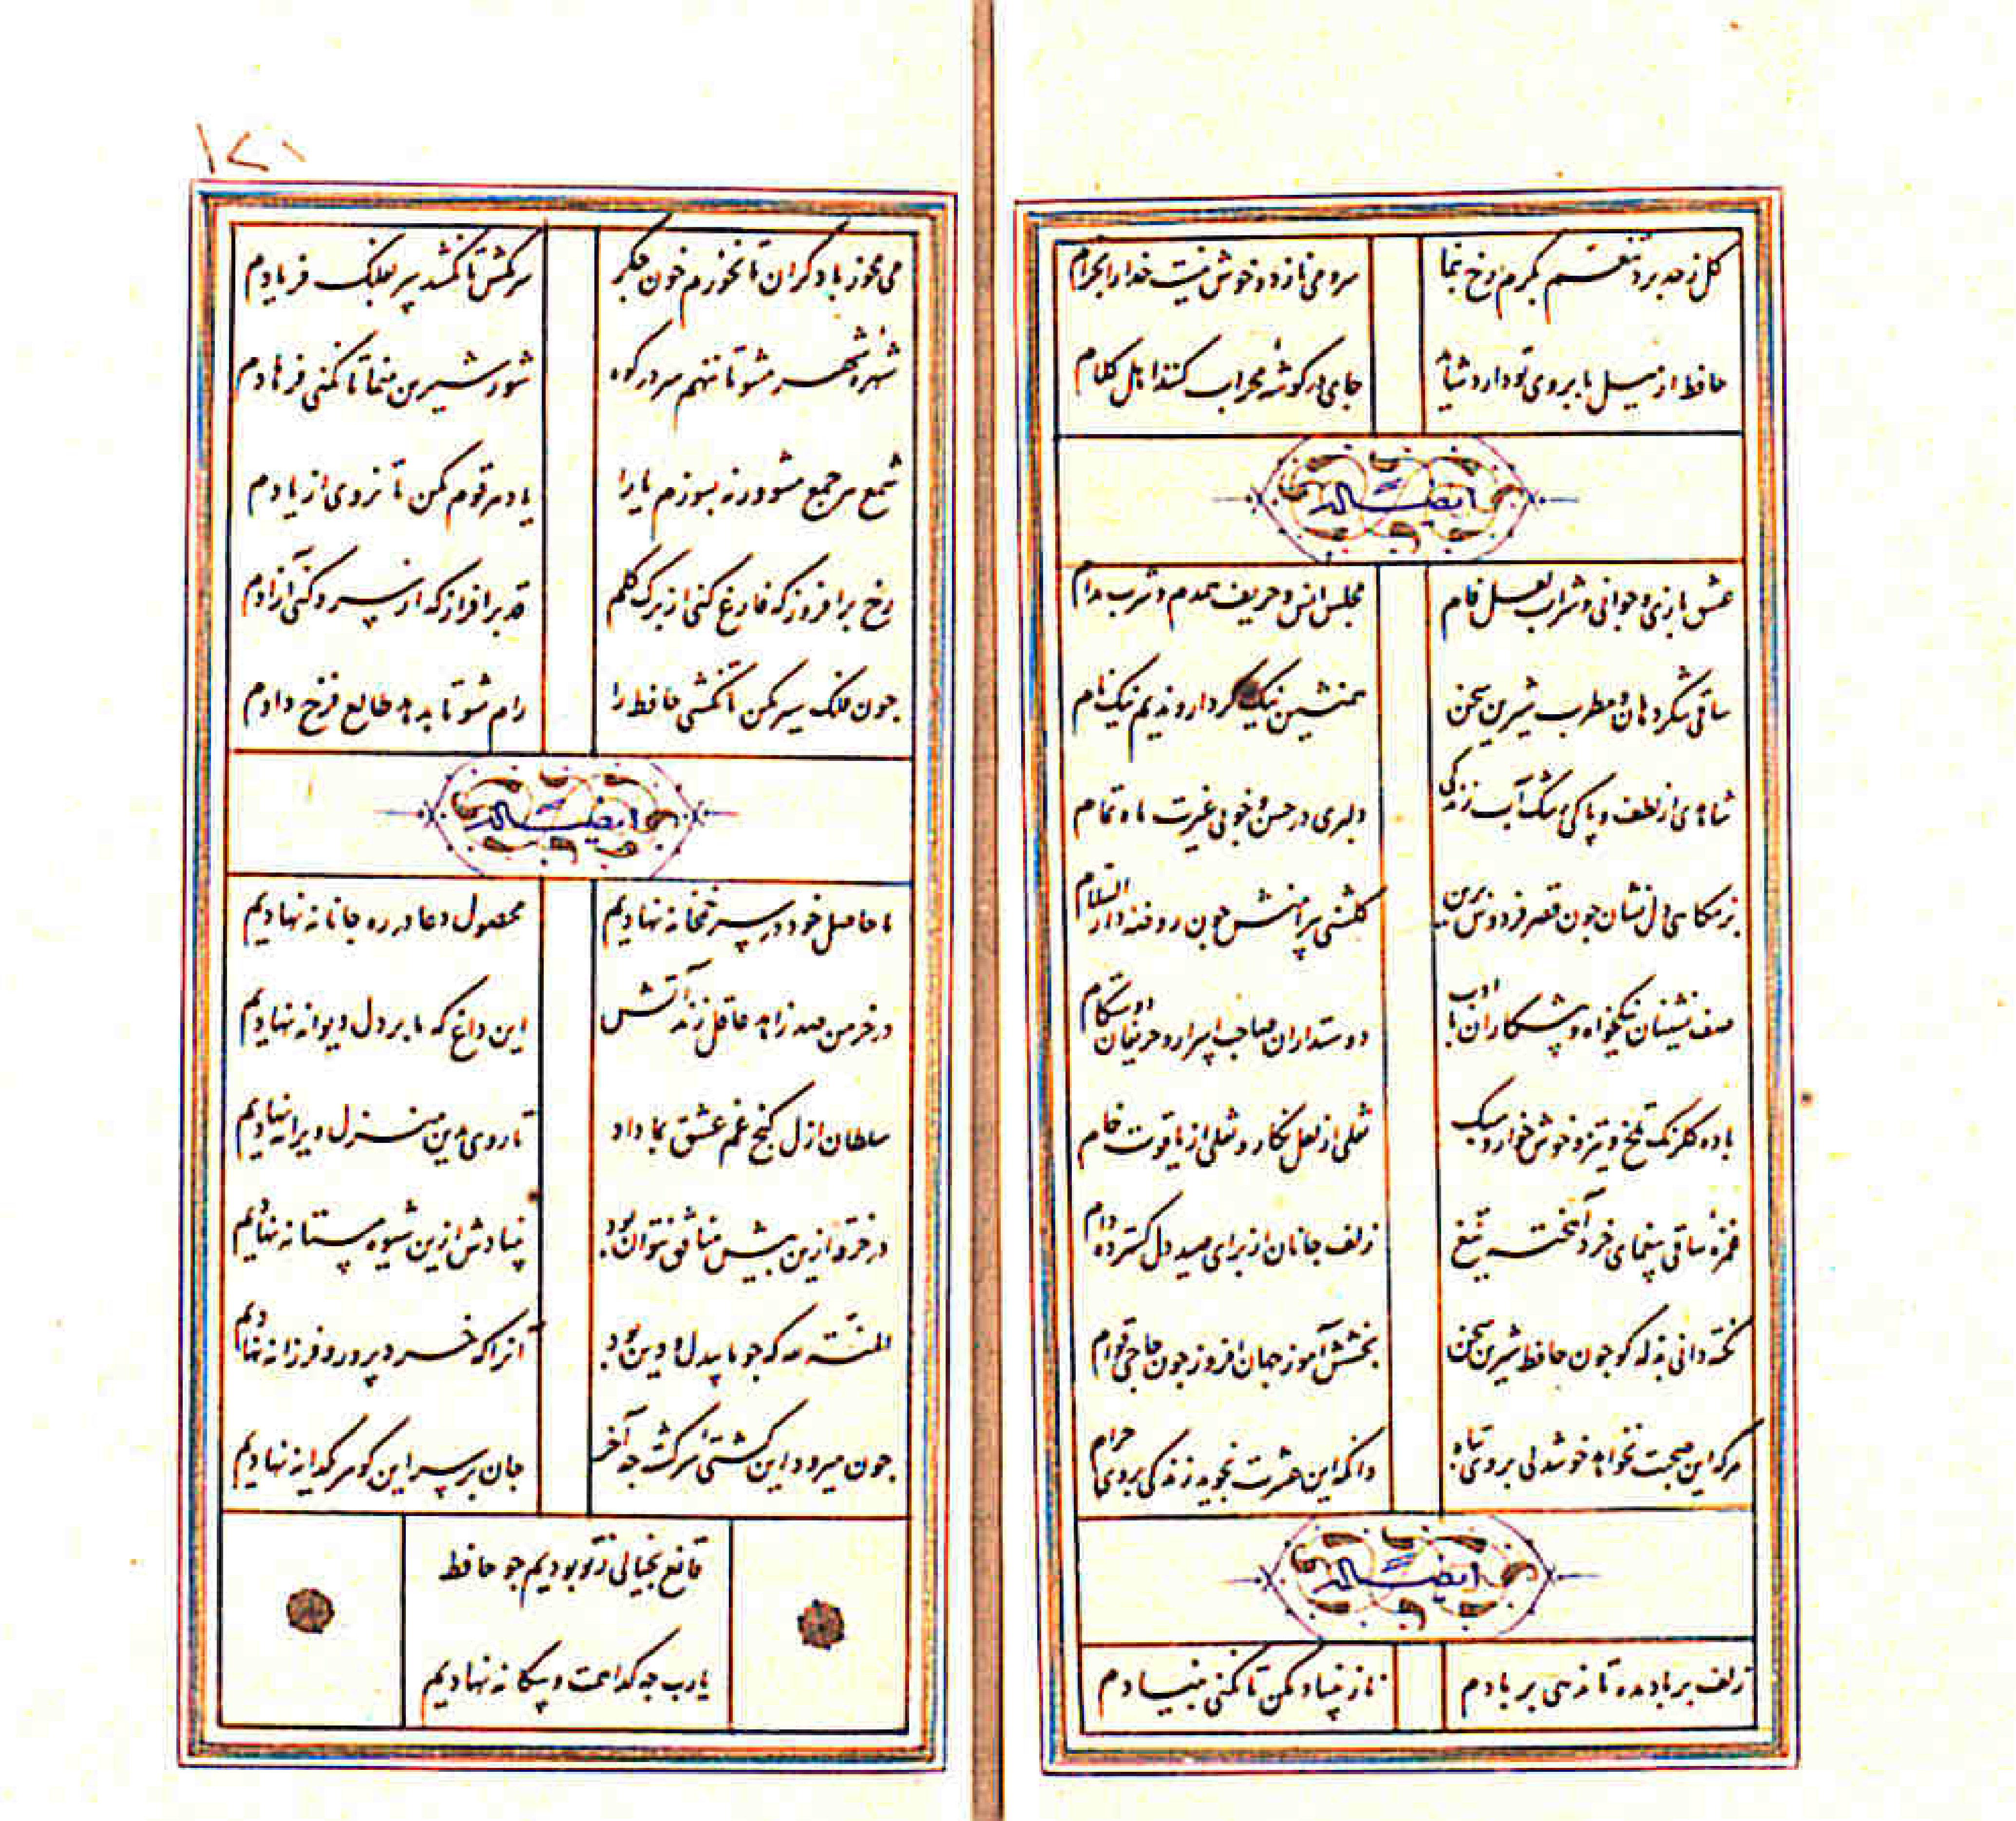 گل ز حد برد تنعم بکرم رخ بنما
سرو می نازد و خوش نیست خدا را بخرام
حافظ ار میل بابروی تو دارد شاید
جای در گوشه محراب کنند اهل کلام
ایضا له
عشق بازی و جوانی و شراب لعل فام
مجلس انس و حریف همدم و شرب مدام
ساقی شکر دهان و مطرب شیرین سخن
همنشین نیک کردار و ندیم نیک نام
شاهدی از لطف و پاکی رشک آب زندگی
دلبری در حسن و خوبی غیرت ماه تمام
بزمگاهی دل نشان چون قصر فردوس برین
گلشنی پیرامنش چون روضه دار السلام
صف نشینان نیکخواه و پیشکاران با ادب
دوستداران صاحب اسرار و حریفان دوستکام
باده گلرنگ تلخ و تیز و خوش خوار و سبک
نقلی از لعل نگار و نقلی از یاقوت خام
غمزه ساقی بیغمای خرد آهخته تیغ
زلف جانان از برای صید دل گسترده دام
نکته دانی بذله گو چون حافظ شیرین سخن
بخشش آموز جهان افروز چون حاجی قوام
هرکه این صحبت نخواهد خوشدلی بر وی تباه
وانکه این عشرت نجوید زندگی بر وی حرام
ایضا له
زلف بر باد مده تا ندهی بر بادم
ناز بنیاد مکن تا نکنی بنیادم
۱۷۱
می مخور با دگران تا نخورم خون جگر
سر مکش تا نکشد سر بفلک فریادم
شهره شهر مشو تا ننهم سر در کوه
شور شیرین منما تا نکنی فرهادم
شمع هر جمع مشو ورنه بسوزم ما را
یاد هر قوم مکن تا نروی از یادم
رخ برافروز که فارغ کنی از برگ گلم
قد برافراز که از سرو کنی آزادم
چون فلک سیر مکن تا نکشی حافظ را
رام شو تا بدهد طالع فرخ دادم
ایضا له
ما حاصل خود در سر خمخانه نهادیم
محصول دعا در ره جانانه نهادیم
در خرمن صد زاهد عاقل زند آتش
این داغ که ما بر دل دیوانه نهادیم
سلطان ازل گنج غم عشق بما داد
تا روی درین منزل ویرانه نهادیم
در خرقه ازین بیش منافق نتوان بود
بنیادش ازین شیوه مستانه نهادیم
المنة لله که چو ما بیدل و دین بود
آنرا که خرد پرور و فرزانه نهادیم
چون میرود این کشتی سرگشته چو آخر
جان بر سر این گوهر یکدانه نهادیم
قانع بخیالی ز تو بودیم چو حافظ
یا رب چه گدا همت و بیگانه نهادیم